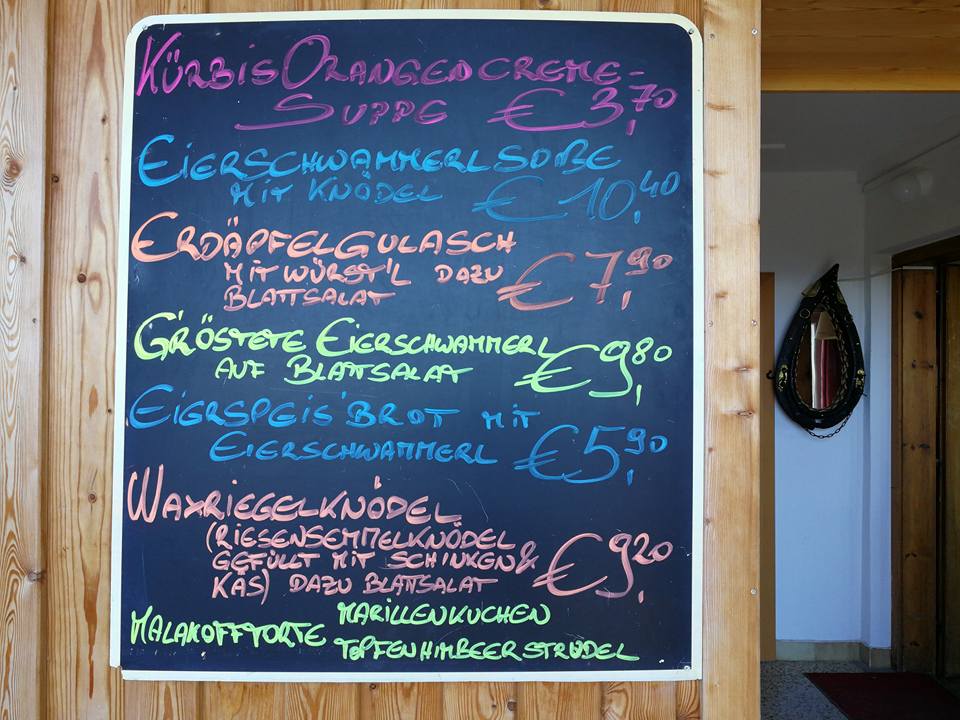 KÜRBISORANGENCREME-
SUPPE € 3,70
EIERSCHWAMMERLSOßE
MIT KNÖDEL € 10,40
ERDÄPFELGULASCH
MIT WÜRST'L DAZU € 7,90
BLATTSALAT
G'RÖSTETE EIERSCHWAMMERL
AUF BLATTSALAT € 9,80
EIERSPEIS'BROT MIT
EIERSCHWAMMERL € 5,90
WAXRIEGELKNÖDEL
(RIESENSEMMELKNÖDEL
GEFÜLLT MIT SCHINKEN & € 9,20
KÄS) DAZU BLATTSALAT
MARILLENKUCHEN
MALAKOFFTORTE
TOPFENHIMBEERSTRUDEL